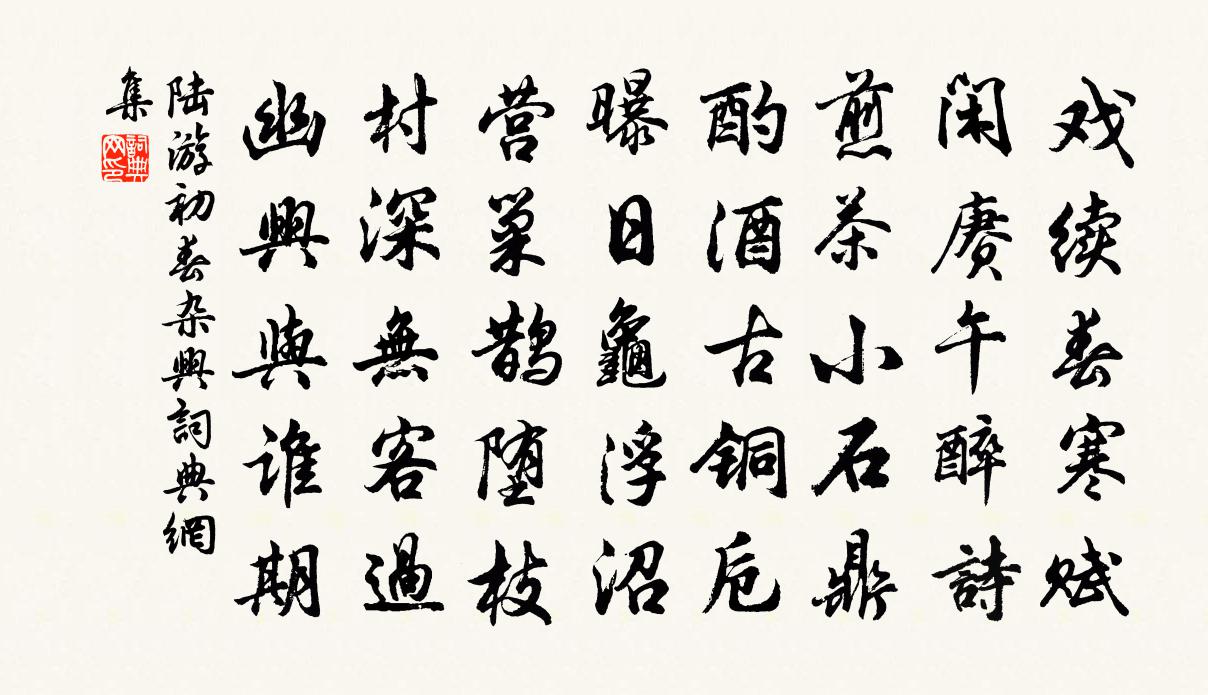 戏续春寒赋
闲赓午醉詩
煎茶小石鼎
酌酒古铜卮
曝日龜浮沼
营巢鹊堕枝
村深無客過
幽興與谁期
陆游初春杂興詞典網
集
詞典
网印